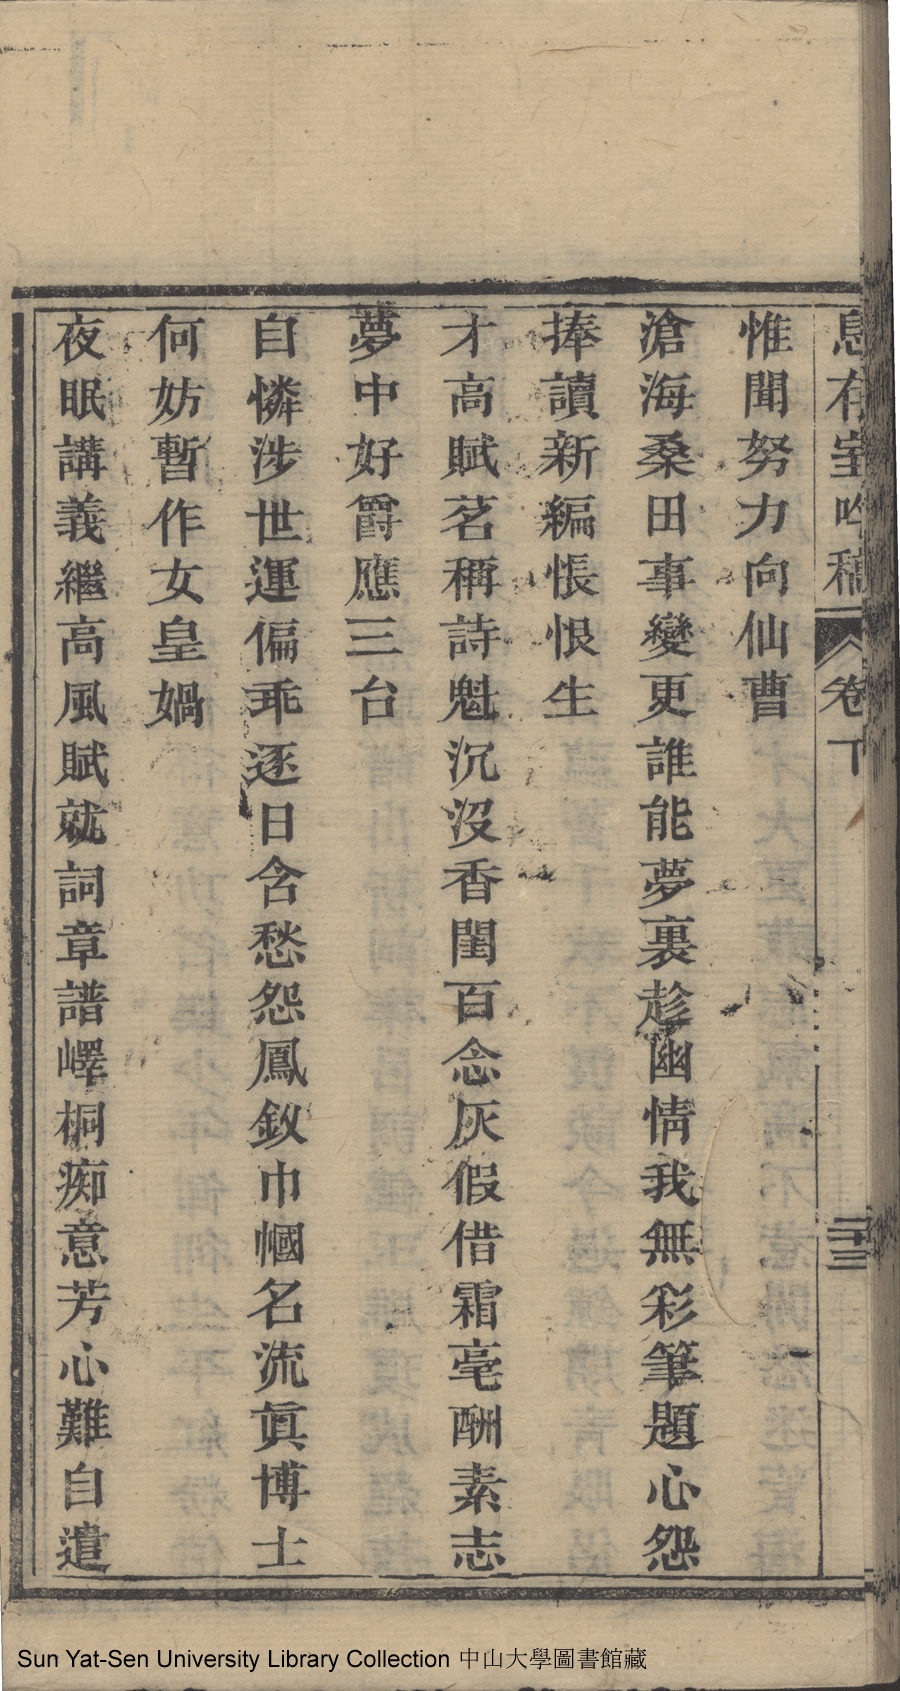 息存室吟稿 卷下 二十三
惟聞努力向仙曹
滄海桑田事變更誰能夢裏趁幽情我無彩筆題心怨
捧讀新編悵恨生
才高賦茗稱詩魁沉沒香閨百念灰假借霜毫酬素志
夢中好爵應三台
自憐涉世運偏乖逐日含愁怨鳳釵巾幗名流眞博士
何妨暫作女皇媧
夜眠講義繼高風賦就詞章譜嶧桐痴意芳心難自遣
Sun Yat-Sen University Library Collection 中山大學圖書館藏